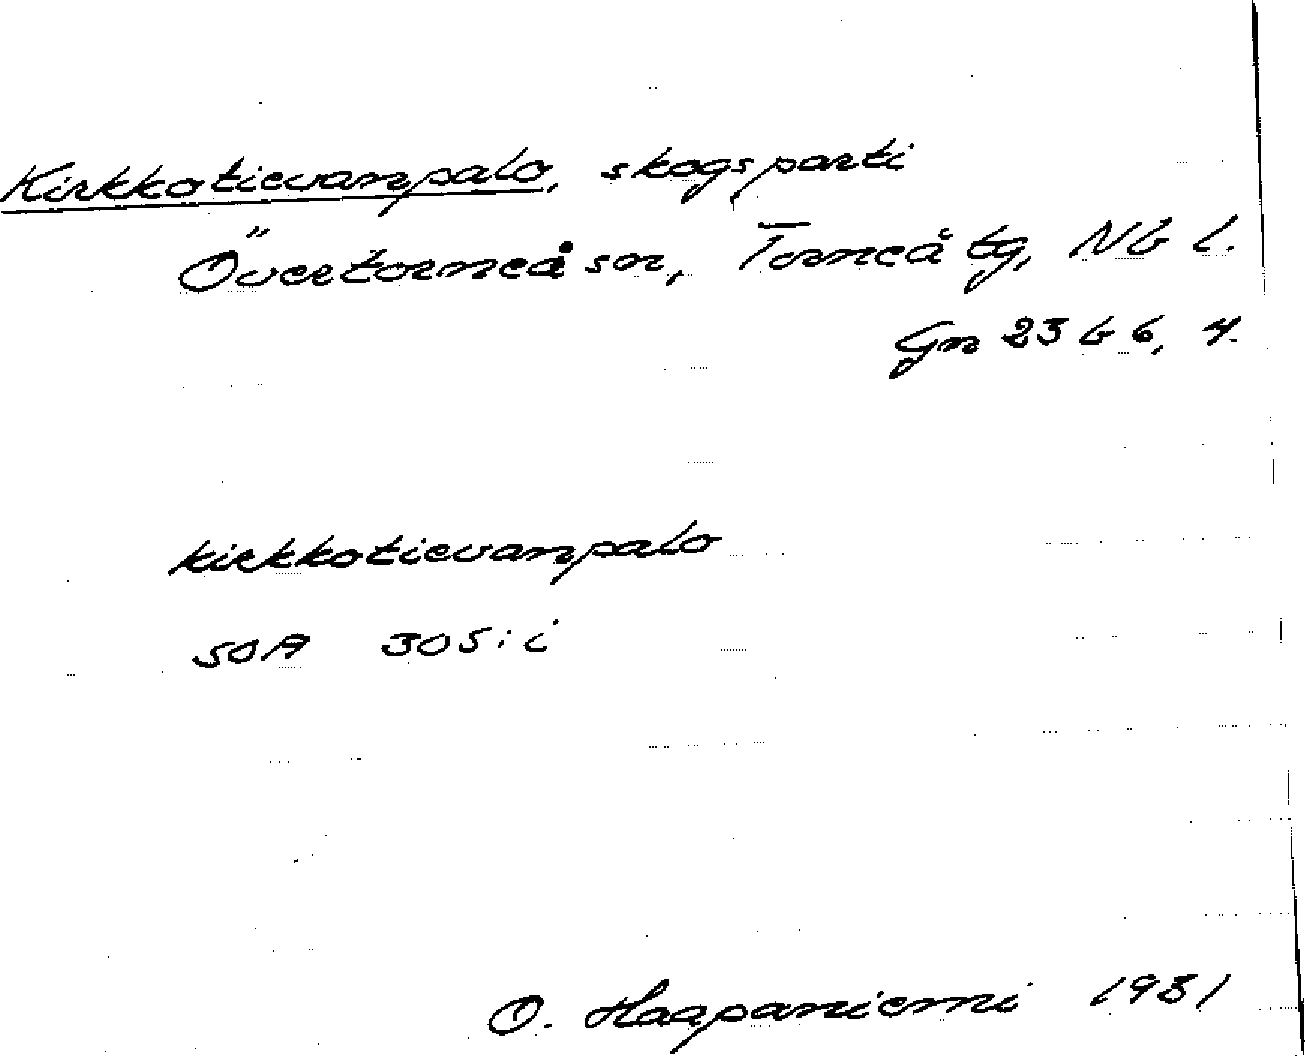 Kirkkotievanpalo, skogsparti
Övertorneå sn, Torneå tg, Nb l.
Gn 23 b 6, 4.
kirkkotievanpalo
SOA 305:i
O. Haapaniemi 1931